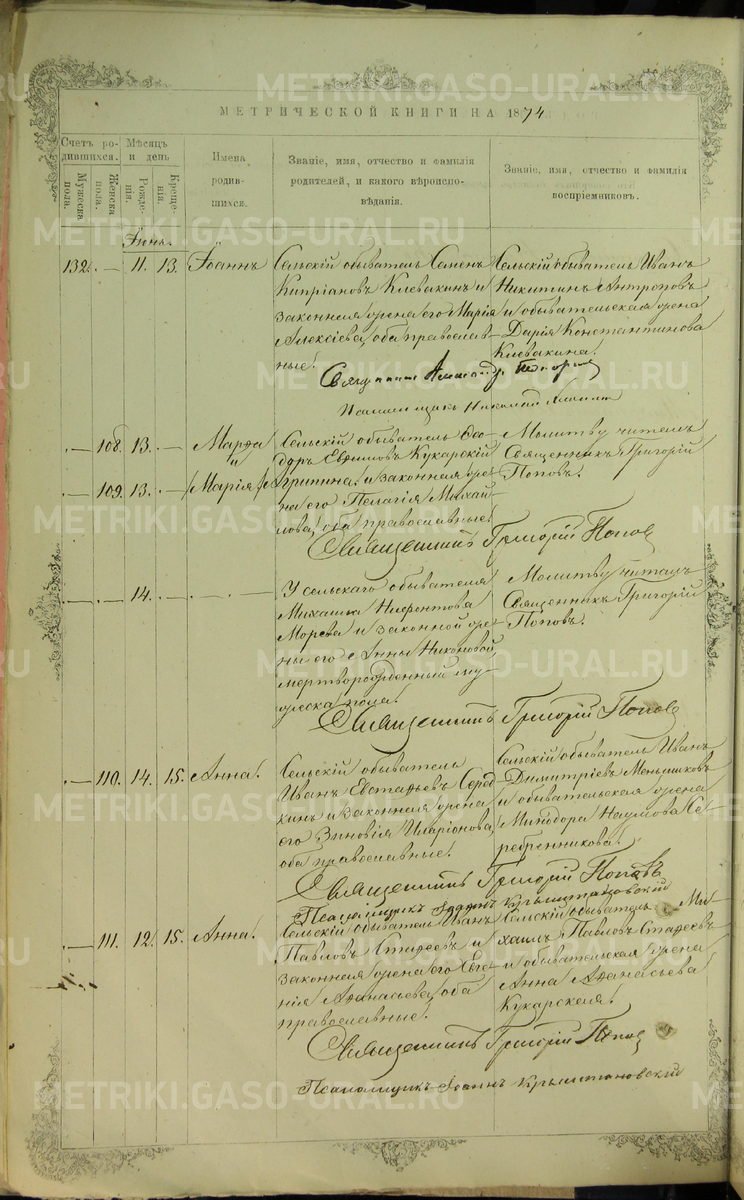 МЕТРИЧЕСКОЙ КНИГИ НА 1874
Счетъ родившихся.
Мужеска пола.
Женска пола.
Мѣсяцъ и день
Рожденія.
Крещенія.
Имена родившихся.
Званіе, имя, отчество и фамилія
родителей, и какого вѣроисповѣданія.
Званіе, имя, отчество и фамилія
воспріемниковъ.
Іюнь.
132. — 11. 13. Іоаннъ
Сельскій обыватель Семенъ
Кипріановъ Клевакинъ и
законная жена его Марія
Алексіева, оба православные.
Сельскій обыватель Иванъ
Никитинъ Антроповъ
и обывательская жена
Дарія Константинова
Клевакина.
Священникъ Александръ
Псаломщикъ Николай
— 108. 13. — Марѳа
и
— 109. 13. — Марія
Сельскій обыватель Ѳеодоръ Евфимовъ Кукарскій
и законная жена его Пелагія Михайлова, оба православные.
Молитву читалъ
Священникъ Григорій
Поповъ.
Священникъ Григорій Поповъ
— — 14. — —
У сельскаго обывателя
Михаила Нифонтова
Морева и законной жены его Анны Никоновой,
мертворожденный мужеска пола.
Молитву читалъ
Священникъ Григорій
Поповъ.
Священникъ Григорій Поповъ
— 110. 14. 15. Анна.
Сельскій обыватель
Иванъ Евстафьевъ
и законная жена
его Зиновія Иларіонова,
оба православные.
Сельскій обыватель Иванъ
Димитріевъ Меньшиковъ
и обывательская жена
Минодора Наумова Серебренникова.
Священникъ Григорій Поповъ
Псаломщикъ Іоаннъ Крыштановскій
— 111. 12. 15. Анна.
Сельскій обыватель Иванъ
Павловъ Стафеевъ и
законная жена его Евгенія Аѳанасьева, оба
православные.
Сельскій обыватель Михаилъ Павловъ Стафеевъ
и обывательская жена
Анна Аѳанасьева
Кукарская.
Священникъ Григорій Поповъ
Псаломщикъ Іоаннъ Крыштановскій
METRIKI.GASO-URAL.RU